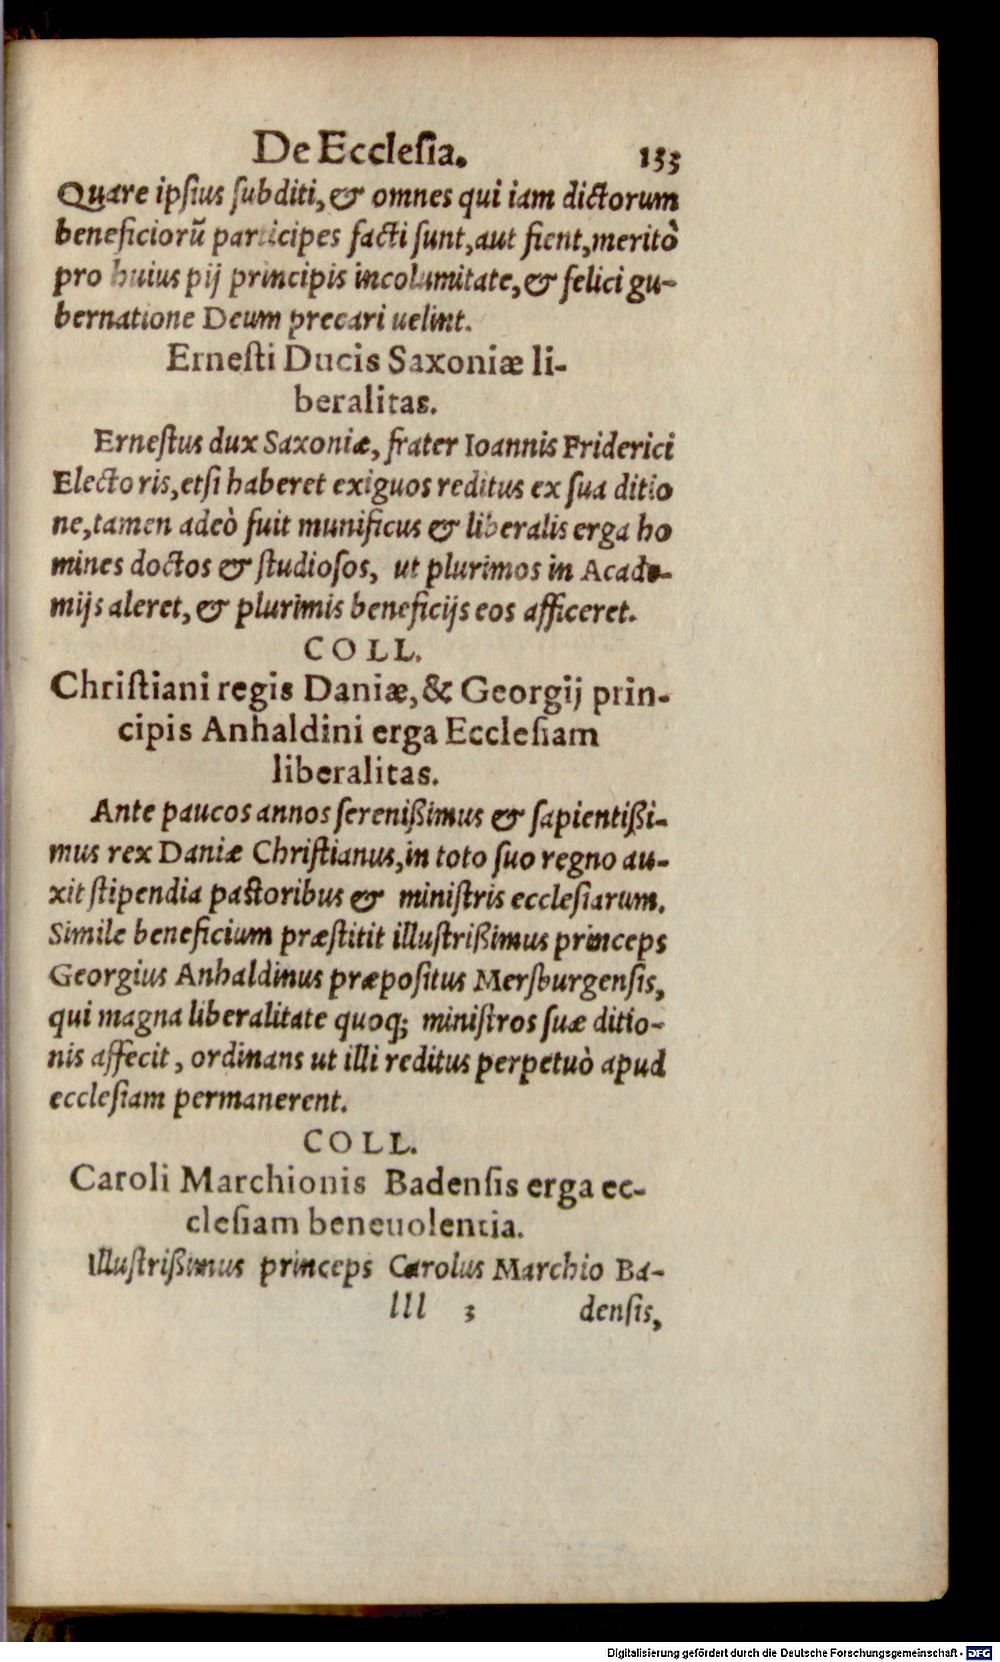 De Ecclesia. 153
Quare ipſius ſubditi, & omnes qui iam dictorum
beneficiorũ participes facti ſunt, aut fient, meritò
pro huius pij principis incolumitate, & felici gu-
bernatione Deum precari uelint.
Erneſti Ducis Saxoniæ li-
beralitas.
Erneſtus dux Saxoniæ, frater Ioannis Friderici
Electoris, etſi haberet exiguos reditus ex ſua ditio
ne, tamen adeò fuit munificus & liberalis erga ho
mines doctos & ſtudioſos, ut plurimos in Acade-
mijs aleret, & plurimis beneficijs eos afficeret.
COLL.
Chriſtiani regis Daniæ, & Georgij prin-
cipis Anhaldini erga Eccleſiam
liberalitas.
Ante paucos annos ſerenißimus & ſapientißi-
mus rex Daniæ Chriſtianus, in toto ſuo regno au-
xit ſtipendia paſtoribus & miniſtris eccleſiarum.
Simile beneficium præſtitit illuſtrißimus princeps
Georgius Anhaldinus præpoſitus Merſburgenſis,
qui magna liberalitate quoq; miniſtros ſuæ ditio-
nis affecit, ordinans ut illi reditus perpetuò apud
eccleſiam permanerent.
COLL.
Caroli Marchionis Badenſis erga ec-
cleſiam beneuolentia.
Illuſtrißimus princeps Carolus Marchio Ba-
lll 3 denſis,
Digitalisierung gefördert durch die Deutsche Forschungsgemeinschaft - DFG